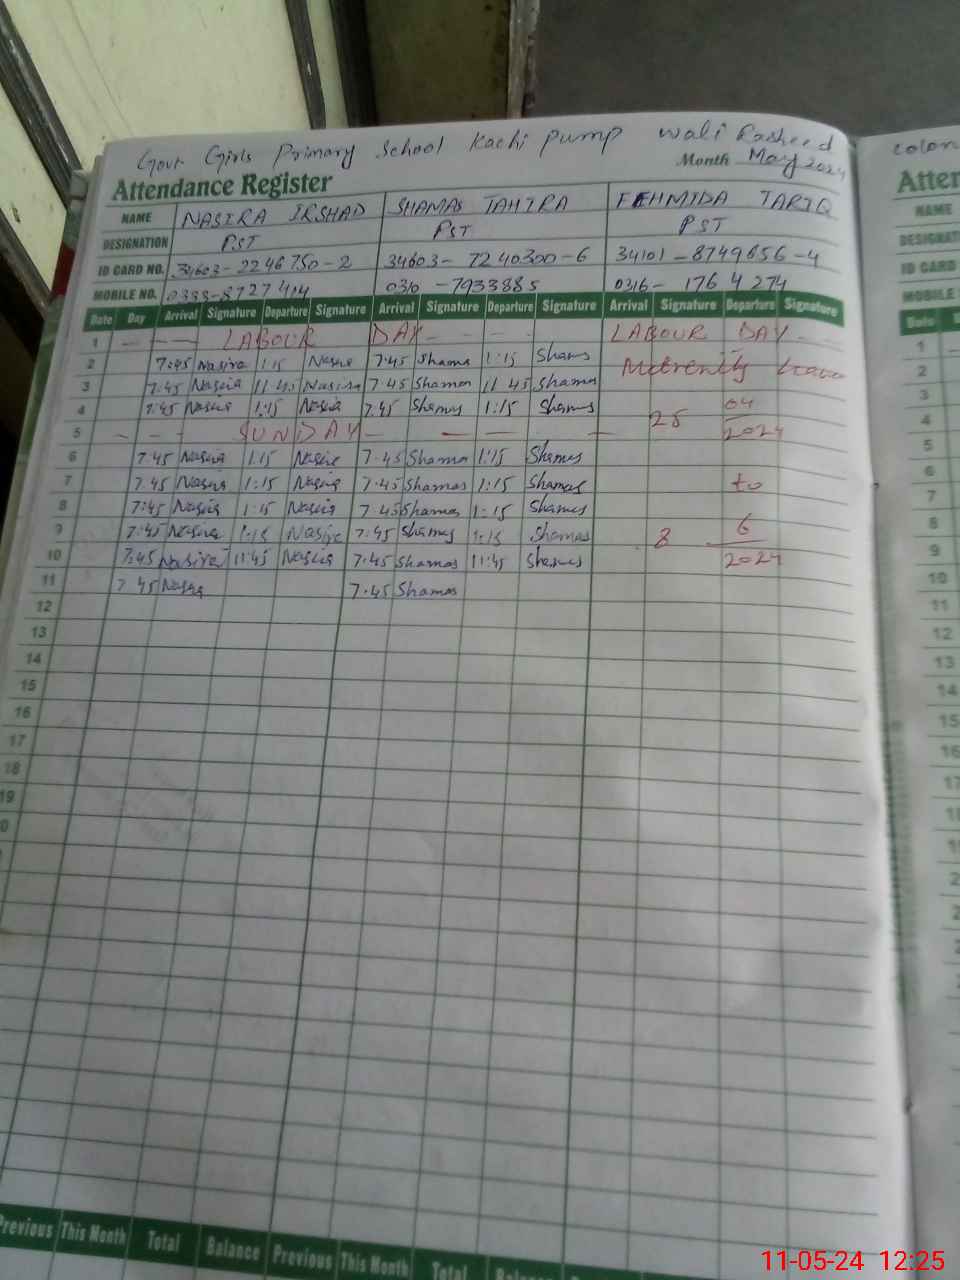 Govt Girls Primary School Kachi pump Wali Rasheed colon
Attendance Register Month May 2024 Atten
NAME NASIRA IRSHAD SHAMAS TAHIRA FEHMIDA TARIQ NAME
DESIGNATION PST PST PST
ID CARD NO. 34603-2246750-2 34603-7240300-6 34101-8749656-4 ID CARD
MOBILE NO. 0333-8727414 0310-7933885 0316-1764274
Date Day Arrival Signature Departure Signature Arrival Signature Departure Signature Arrival Signature Departure Signature Date
1 LABOUR DAY LABOUR DAY 1
2 7:45 Nasira 1:15 Nasira 7:45 Shamas 1:15 Shams 2
3 7:45 Nasira 11:45 Nasira 7:45 Shamas 11 45 Shamas 3
4 7:45 Nasira 1:15 Nasira 7:45 Shamas 1:15 Shamas 25 04 2024 4
5 SUNDAY 5
6 7:45 Nasira 1:15 Nasira 7:45 Shamas 1:15 Shamas 6
7 7.45 Nasira 1:15 Nasira 7.45 Shamas 1:15 Shamas to 7
8 7:45 Nasira 1:15 Nasira 7.45 Shamas 1:15 Shamas 8
9 7:45 Nasira 1:15 Nasira 7:45 Shamas 1:15 Shamas 8 6 2024 9
10 7:45 Nasira 11:45 Nasira 7:45 Shamas 11:45 Shamas 10
11 7 45 Nasira 7.45 Shamas 11
12 12
13 13
14 14
15 15
16 16
17 17
18
19
Previous This Month Total Balance Previous This Month Total
11-05-24 12:25